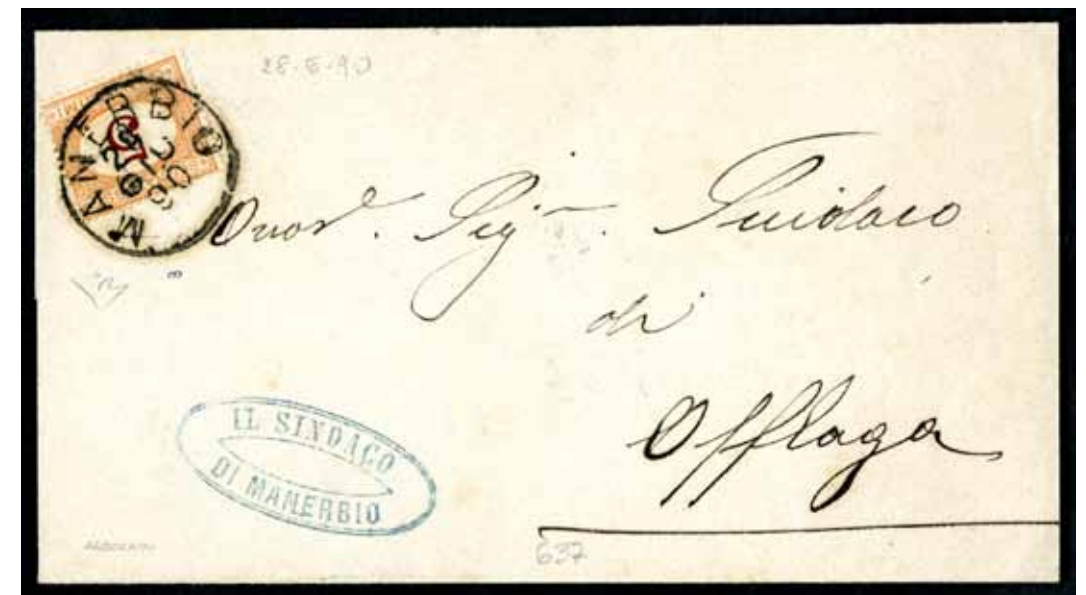 28·5·90
MANERBIO
5
Onor. Sig. Sindaco
di
Offlaga
IL SINDACO
DI MANERBIO
637